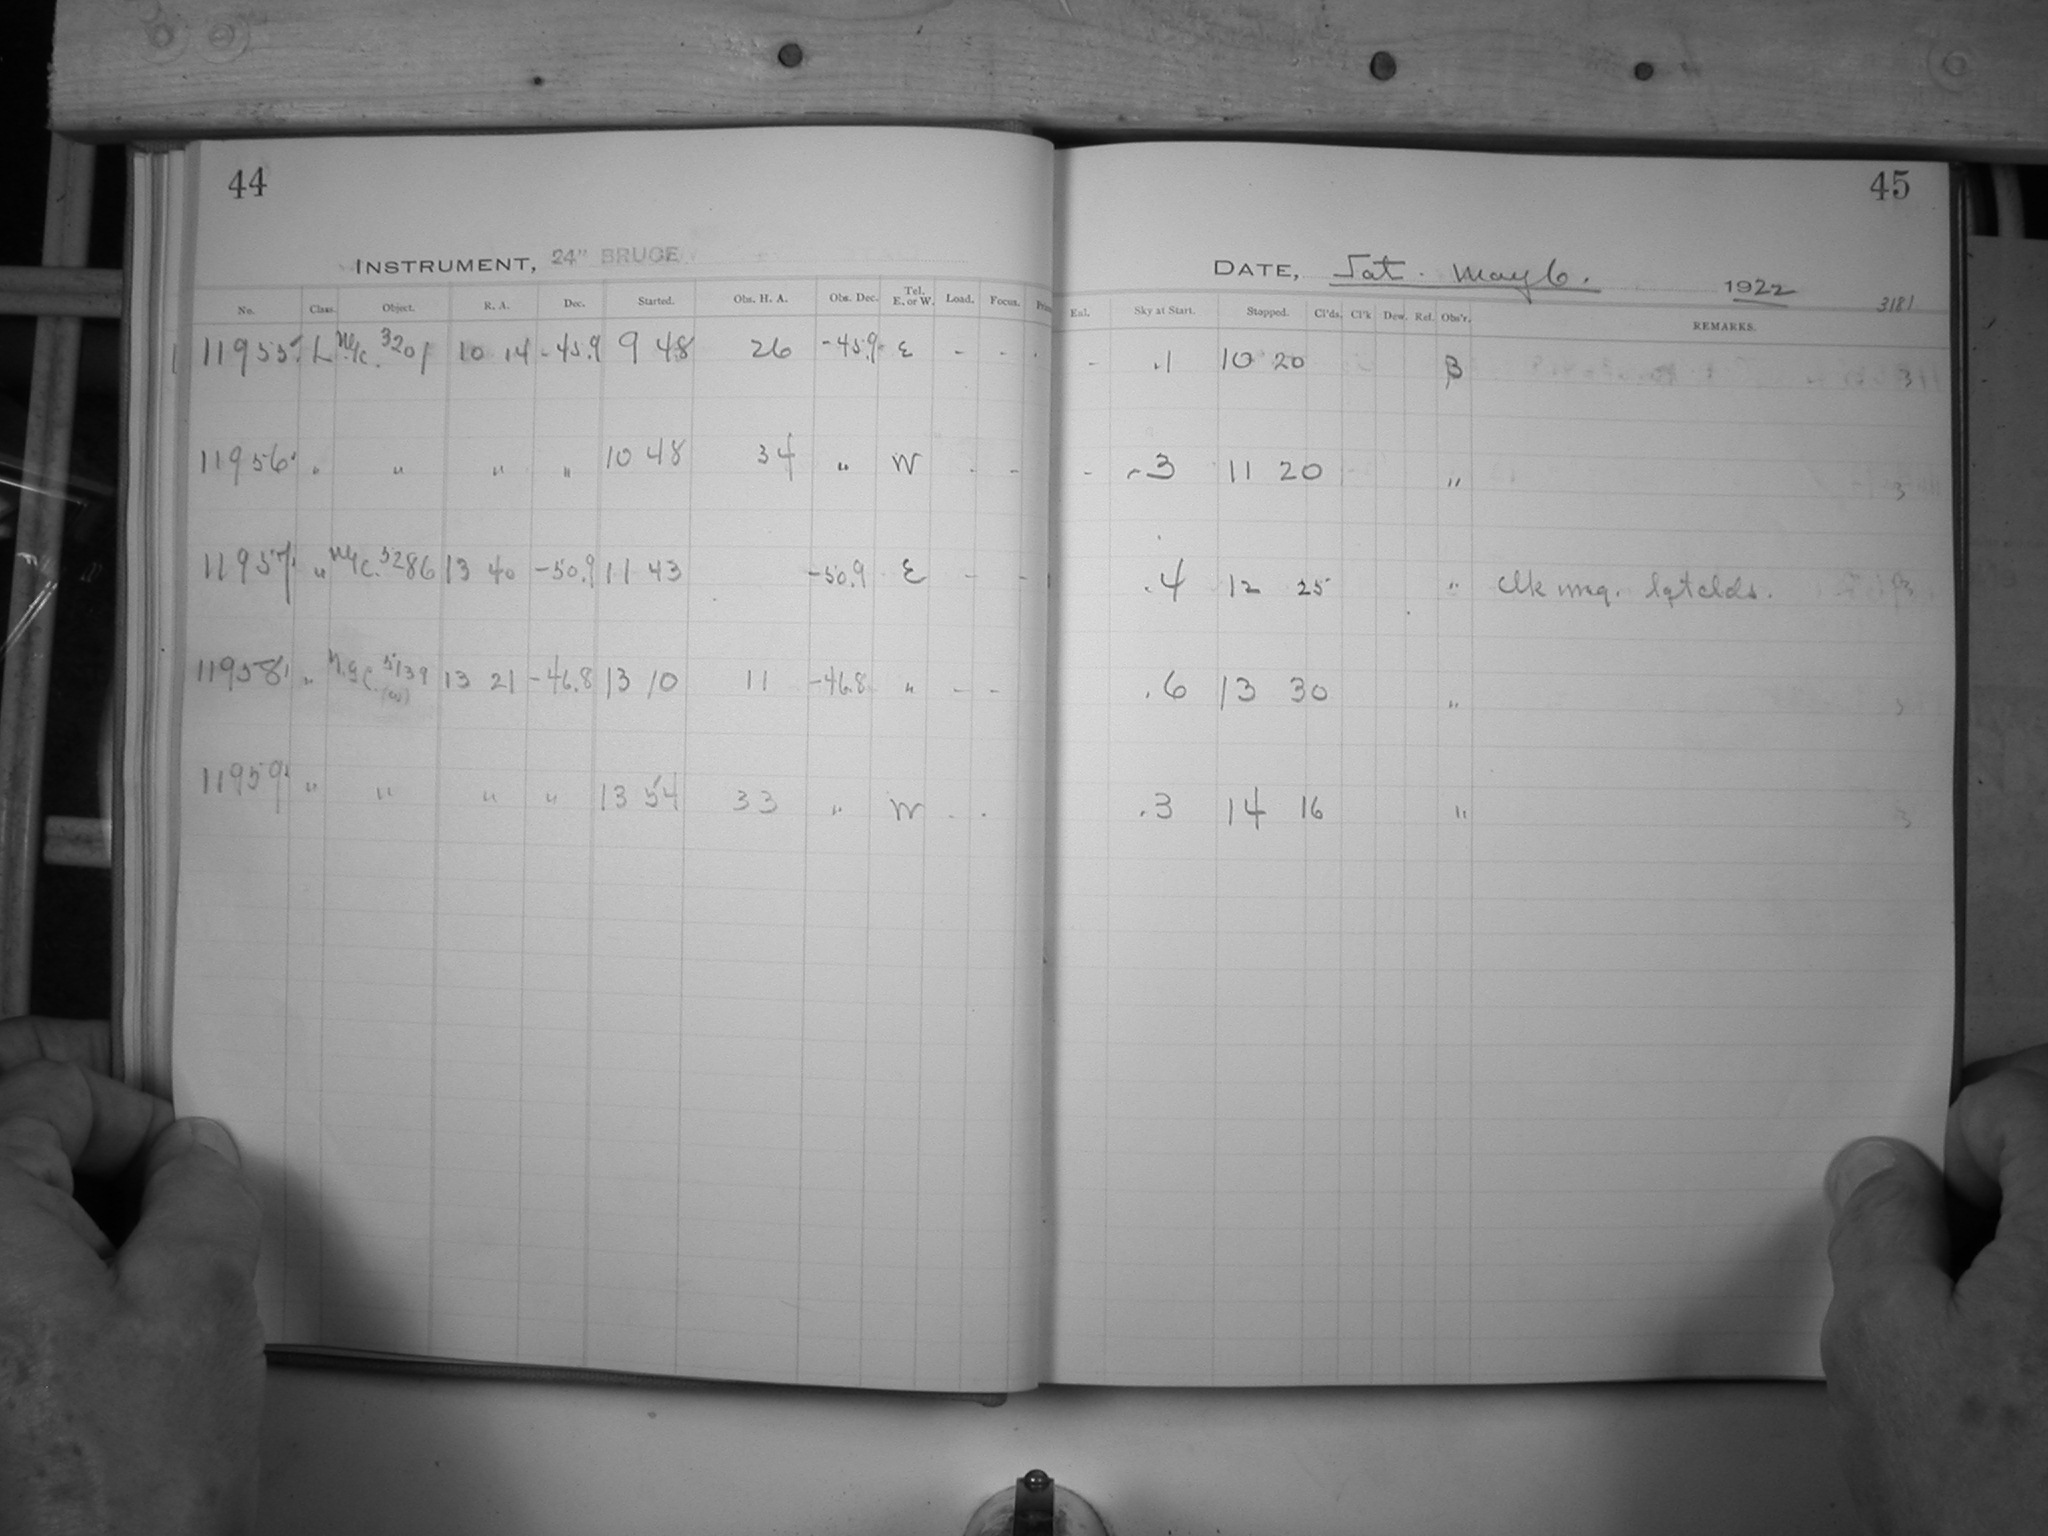 44
INSTRUMENT, 24" BRUCE
No. Class. Object. R. A. Dec. Started. Obs. H. A. Obs. Dec. Tel. E. or W. Load. Focus.
11955 L N.G.C. 3201 10 14 -45.9 9 48 26 -45.9 E - -
11956 " " " " 10 48 34 " W - -
11957 " N.G.C. 5286 13 40 -50.9 11 43 -50.9 E - -
11958 " N.G.C. 5139 (ω) 13 21 -46.8 13 10 11 -46.8 " - -
11959 " " " " 13 54 33 " W - -
45
DATE, Sat. May 6. 1922
3181
Exl. Sky at Start. Stopped. Cl'ds. Cl'k Dew. Ref. Obs'r. REMARKS.
- .1 10 20 B 3
- .3 11 20 " 3
.4 12 25 " Clk irreg. lgt clds. 3
.6 13 30 " 3
.3 14 16 " 3